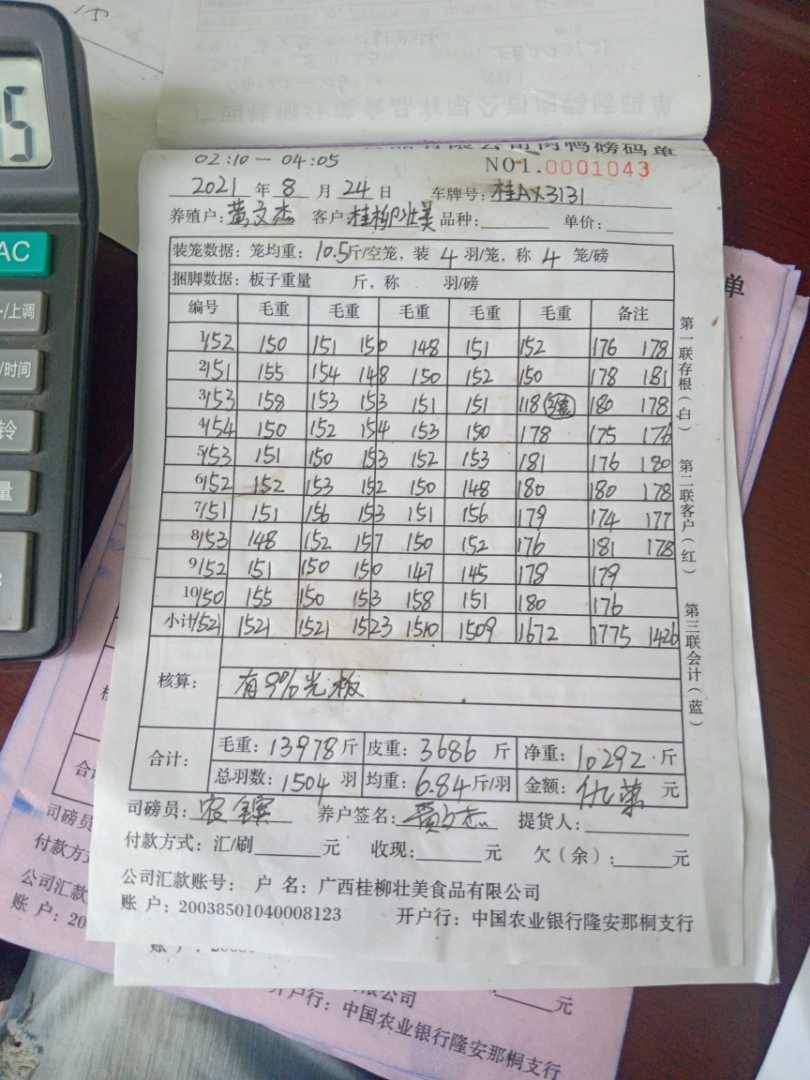 肉鸭磅码单
02:10 — 04:05
NO1.0001043
2021 年 8 月 24 日 车牌号: 桂AX3131
养殖户: 黄文杰 客户: 桂柳壮美 品种: 单价:
装笼数据: 笼均重: 10.5斤/空笼, 装 4 羽/笼, 称 4 笼/磅
捆脚数据: 板子重量 斤, 称 羽/磅
编号 毛重 毛重 毛重 毛重 毛重 备注
1 152 150 151 150 148 151 152 176 178
2 151 155 154 148 150 152 150 178 181
3 153 158 153 153 151 151 118 180 178
4 154 150 152 154 153 150 178 175 176
5 153 151 150 153 152 153 181 176 180
6 152 152 153 152 150 148 180 180 178
7 151 151 156 153 151 156 179 174 177
8 153 148 152 157 150 152 176 181 178
9 152 151 150 150 147 145 178 179
10 150 155 150 153 158 151 180 176
小计 1521 1521 1521 1523 1510 1509 1672 1775 1426
核算: 有9%光板
合计: 毛重: 13978 斤 皮重: 3686 斤 净重: 10292 斤
总羽数: 1504 羽 均重: 6.84 斤/羽 金额: 元
司磅员: 养户签名: 黄文杰 提货人:
付款方式: 汇/刷 元 收现: 元 欠(余): 元
公司汇款账号: 户 名: 广西桂柳壮美食品有限公司
账 户: 20038501040008123 开户行: 中国农业银行隆安那桐支行
第一联存根(白) 第二联客户(红) 第三联会计(蓝)
单
合计
司磅员
付款方式
公司汇款
账 户: 20
开户行: 中国农业银行隆安那桐支行
元
5
AC
/上调
/时间
铃
量